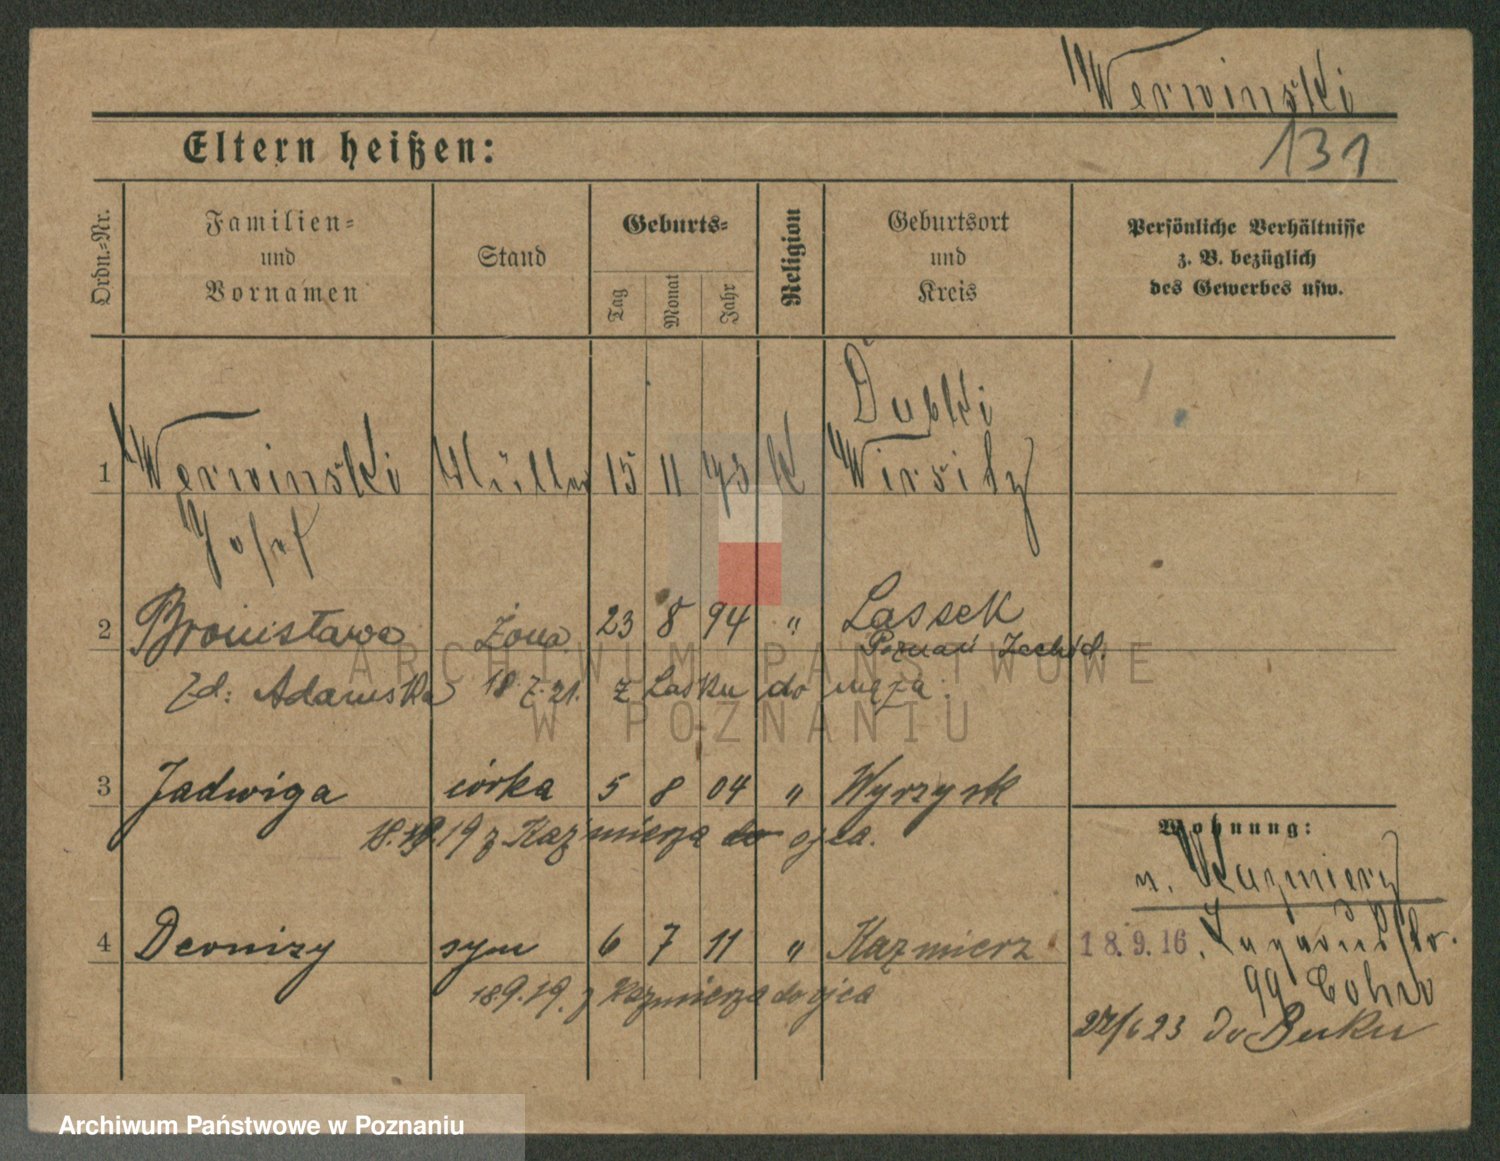 Werwinski
131
Eltern heißen:
Ordn.-Nr.
Familien- und Vornamen
Stand
Geburts-
Tag
Monat
Jahr
Religion
Geburtsort und Kreis
Persönliche Verhältnisse z. B. bezüglich des Gewerbes usw.
Dubki
1 Werwinski Müller 15 11 73 K Wirsitz
Josef
2 Bronisława Żona 23 8 94 " Lassek
Poznań Zachód.
zd: Adamska 18. 7. 21. z Lasku do męża.
3 Jadwiga córka 5 8 04 " Wyrzysk
18.9.19 z Kaźmierza do ojca.
Wohnung:
v. Kazmierz
4 Deonizy syn 6 7 11 " Kaźmierz
18.9.16.
18.9.19. z Kaźmierza do ojca
99
27/6 23 do Buku
ARCHIWUM PAŃSTWOWE
W POZNANIU
Archiwum Państwowe w Poznaniu